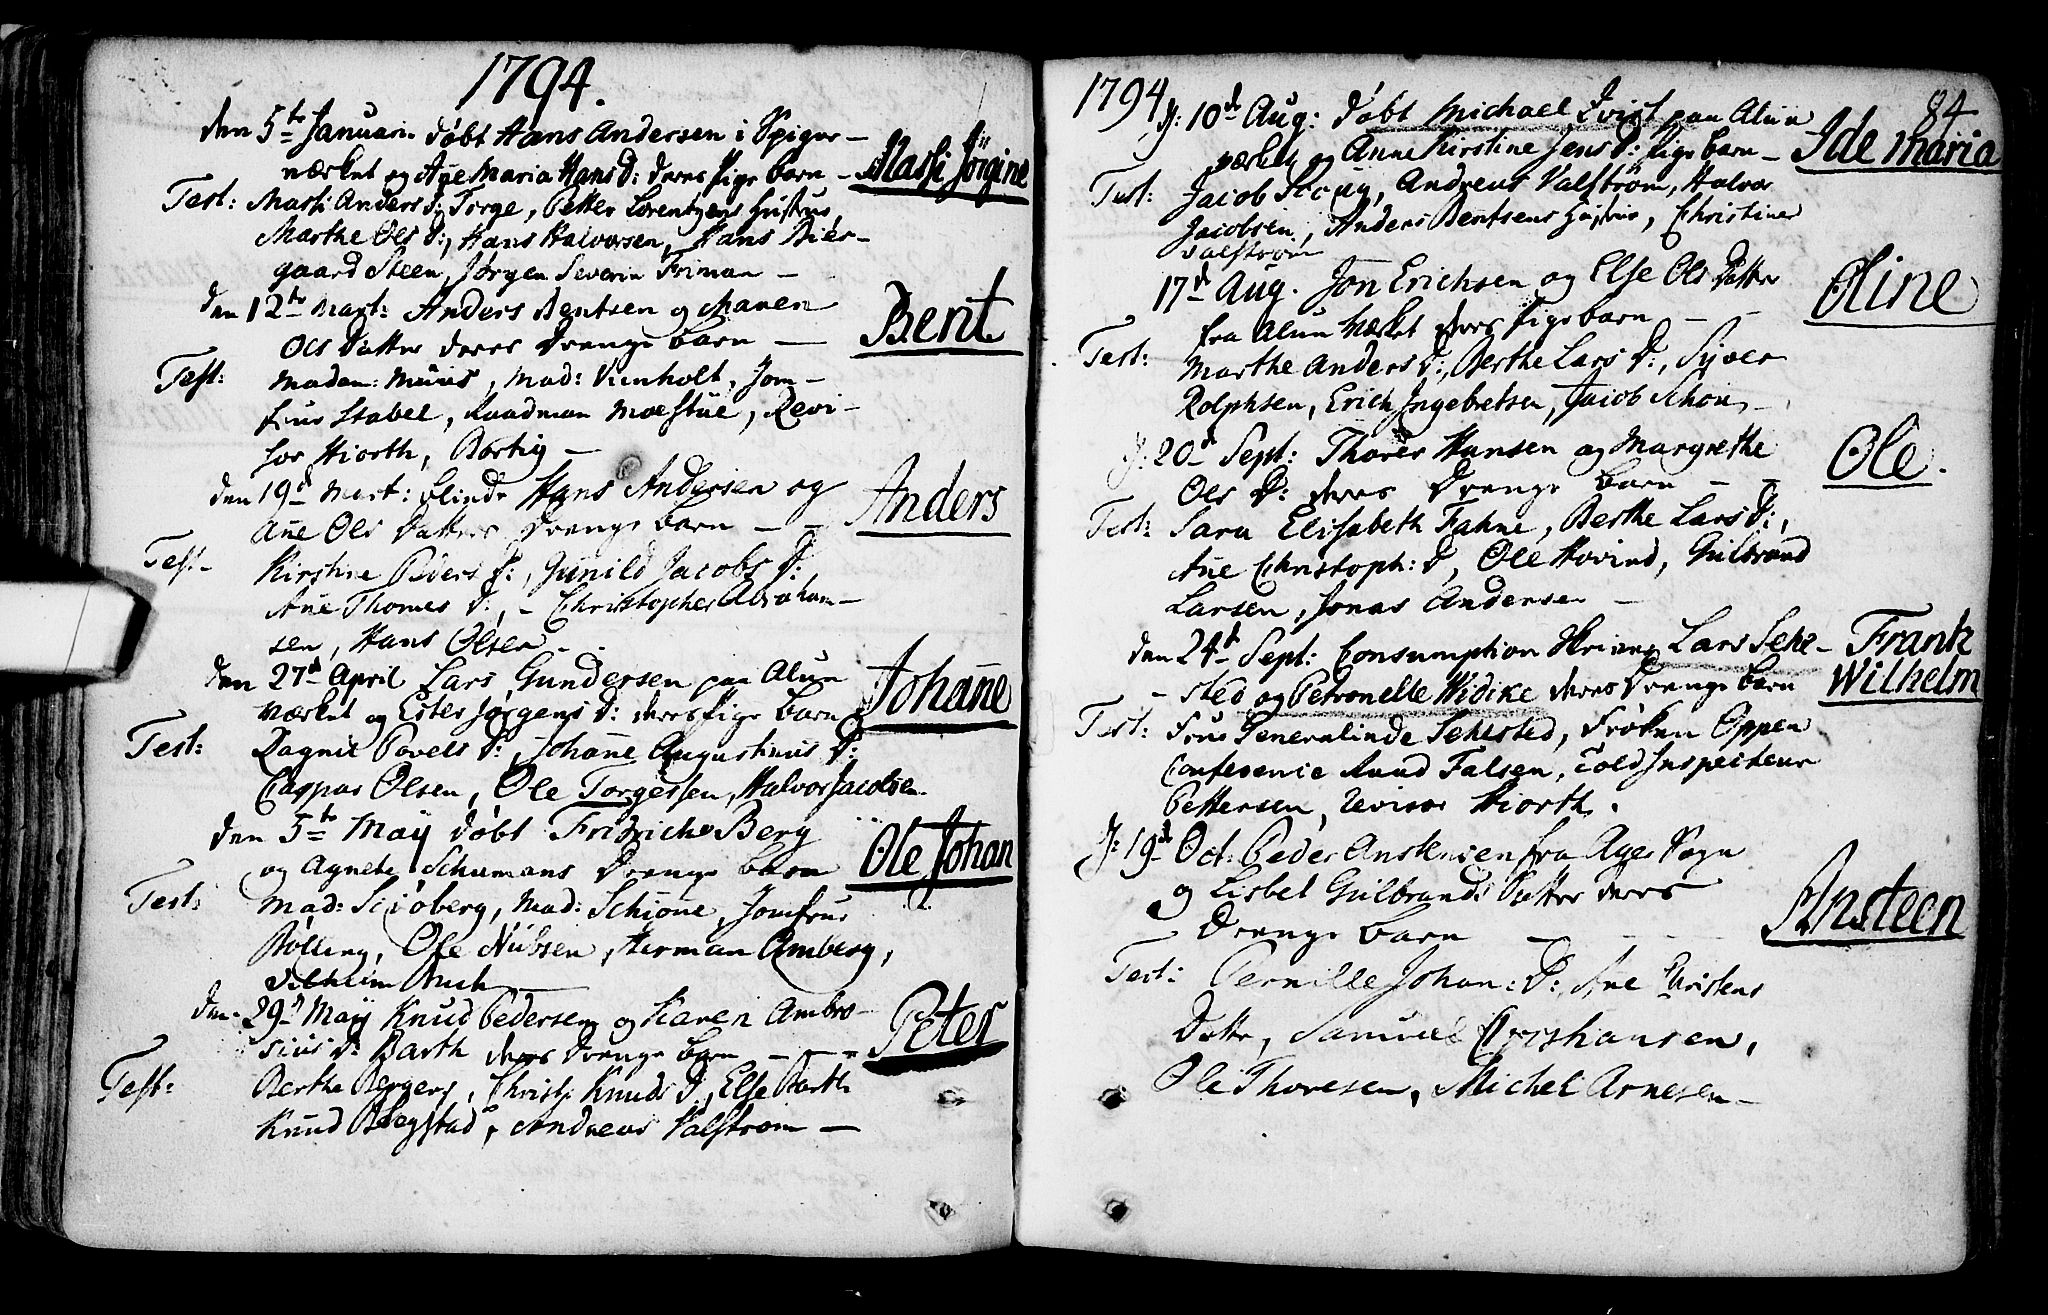 1794.
den 5te Januari døbt Hans Andersen i Spiger-
værket og Añe Maria Hans D: deres Pige barn - Massi Jörgine
Test: Massi Anders D: Torge, Petter Lorentzens Hustrue,
Marthe Ols D:, Hans Halvorsen, Hans Bier-
gaard Steen, Jörgen Severin Friman -
den 12te Mart: Anders Bentsen og Maren
Ols Datter deres Drenge barn - Bent
Test: Madam: Muus, Mad: Vienholt, Jom-
frue Stabel, Raadman Moestue, Revi-
sor Hiorth, Bartig -
den 19d Mart: blinde Hans Andersen og
Añe Ols Datters Drenge barn - - Anders
Test- Kirstine Peders D:, Gunild Jacobs D:
Añe Thomes D:, - Christopher Abraham-
sen, Hans Olsen -
den 27d April Lars Gundersen paa Alun
værket og Ester Jørgens D: deres Pige barn Johañe
Test: Dagnil Povels D:, Johañe Augustinus D:
Caspar Olsen, Ole Torgessen, Halvor Jacobsen.
den 5te Maÿ døbt Fridrichs Berg
og Agnete Schumans Drenge barn Ole Johan
Test: Mad: Siøberg, Mad: Schiøñe, Jomfrue
Bølling, Ole Nübsen, Herman Amberg,
Vilhelm Buch -
den 29d Maÿ Knud Pedersen og Karen Ambro-
sius D: Barth deres Drenge barn - - - Peter
Test: Berthe Bergers, Christj Knuds D, Else Barth
Knud Blegstad, Andreas Valstrøm -
1794 84
D: 10d Aug: døbt Michael Qvist paa Alun
værket og Anne Kirstine Jens D: Pige barn - Ide Maria
Test: Jacob Scoug, Andreas Valstrøm, Halvor
Jacobsen, Anders Bentsens Hustrue, Christine
Valstrøm
17d Aug. Jon Erichsen og Else Ols Datter
fra Alun Værket deres Pige barn - - Oline
Test: Marthe Anders D:, Berthe Lars D:, Syver
Rolphsen, Erich Ingebretsen, Jacob Schøn -
D: 20d Sept: Thorer Hansen og Margrethe
Ols D: deres Drenge barn - - Ole.
Test: Sara Elisabeth Fahne, Berthe Lars D:,
Añe Christoph: D, Ole Hovind, Gulbrand
Larsen, Jonas Andersen -
den 24d Sept: Consumption Skriver Lars Sehe- Frantz
- sted og Petronelle Widike deres Drenge barn Wilhelm
Test: Frue Generalinde Sehested, Frøken Oppen
Conference Raad Falsen, Told Inspecteur
Pettersen, Revisor Hiorth.
D: 19d Oct: Peder Anstensen fra Ager Sogn
og Lisbet Gulbrands Datter deres
Drenge barn - - - - Ansteen
Test: Pernille Johan: D: Ane Christens
Datter, Samuel Christiansen,
Ole Thoresen, Michel Arnesen -